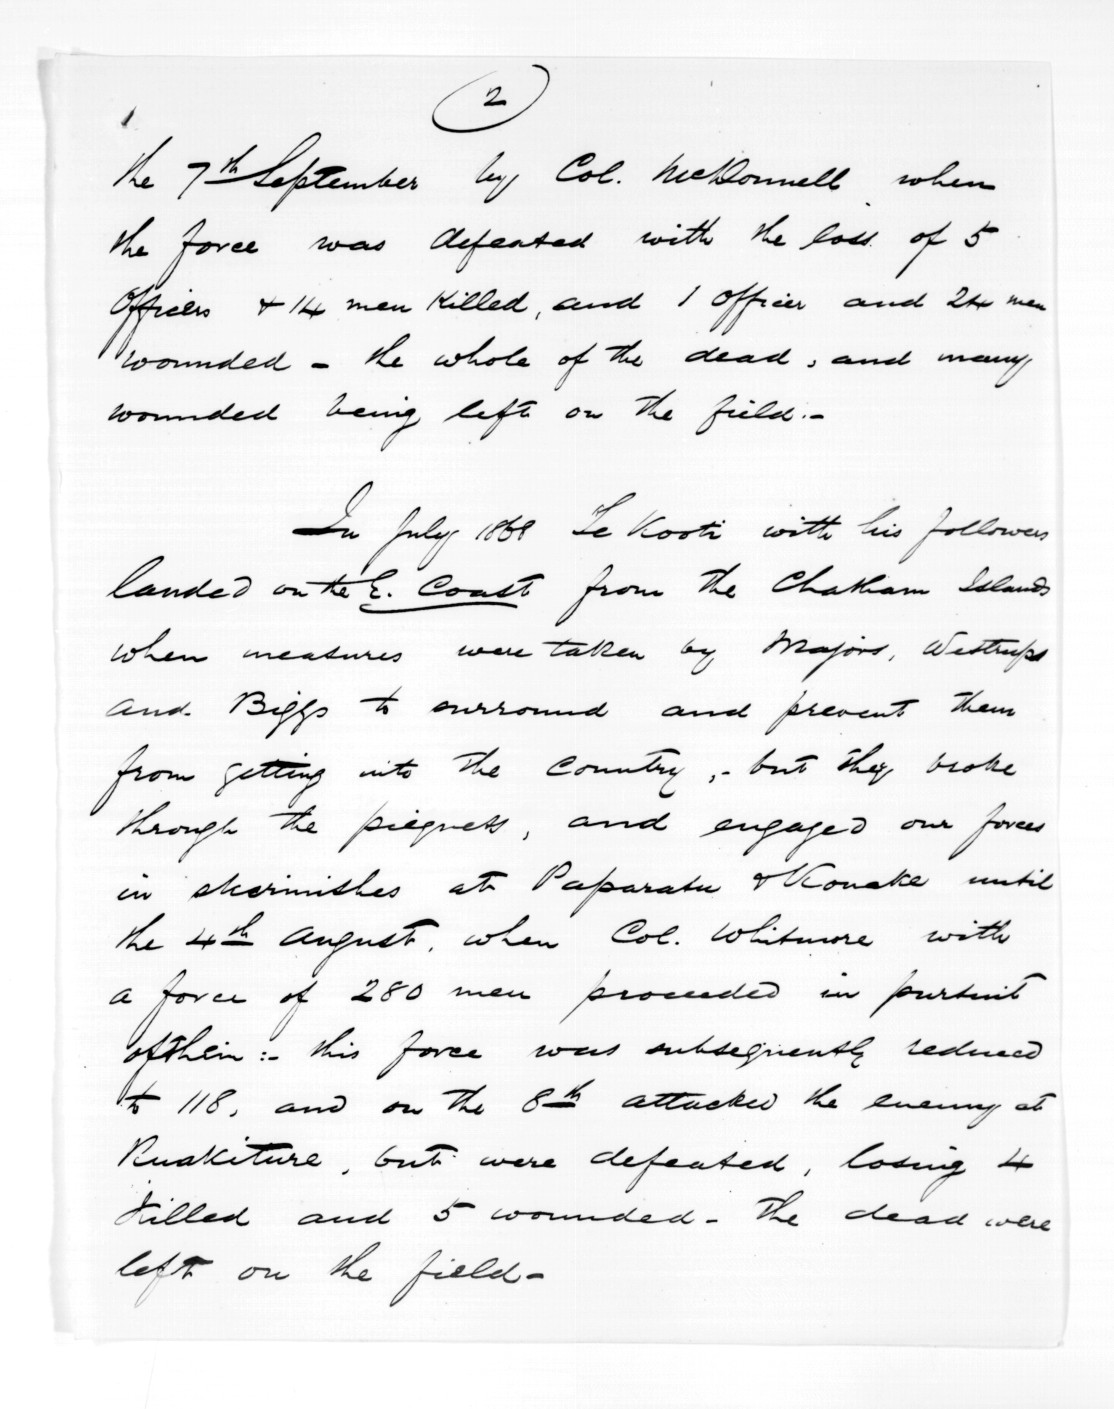 2
the 7th September by Col. McDonnell when
the force was defeated with the loss of 5
Officers & 14 men killed, and 1 officer and 24 men
wounded – the whole of the dead, and many
wounded being left on the field:–
In July 1868 Te Kooti with his followers
landed on the E. Coast from the Chatham Islands
when measures were taken by Majors, Westrupp
and Biggs to surround and prevent them
from getting into the country,– but they broke
through the picquets, and engaged our forces
in skermishes at Paparatu & Konake until
the 4th August, when Col. Whitmore with
a force of 280 men proceeded in pursuit
of them:– this force was subsequently reduced
to 118, and on the 8th attacked the enemy at
Ruakiture, but were defeated, losing 4
killed and 5 wounded – the dead were
left on the field –